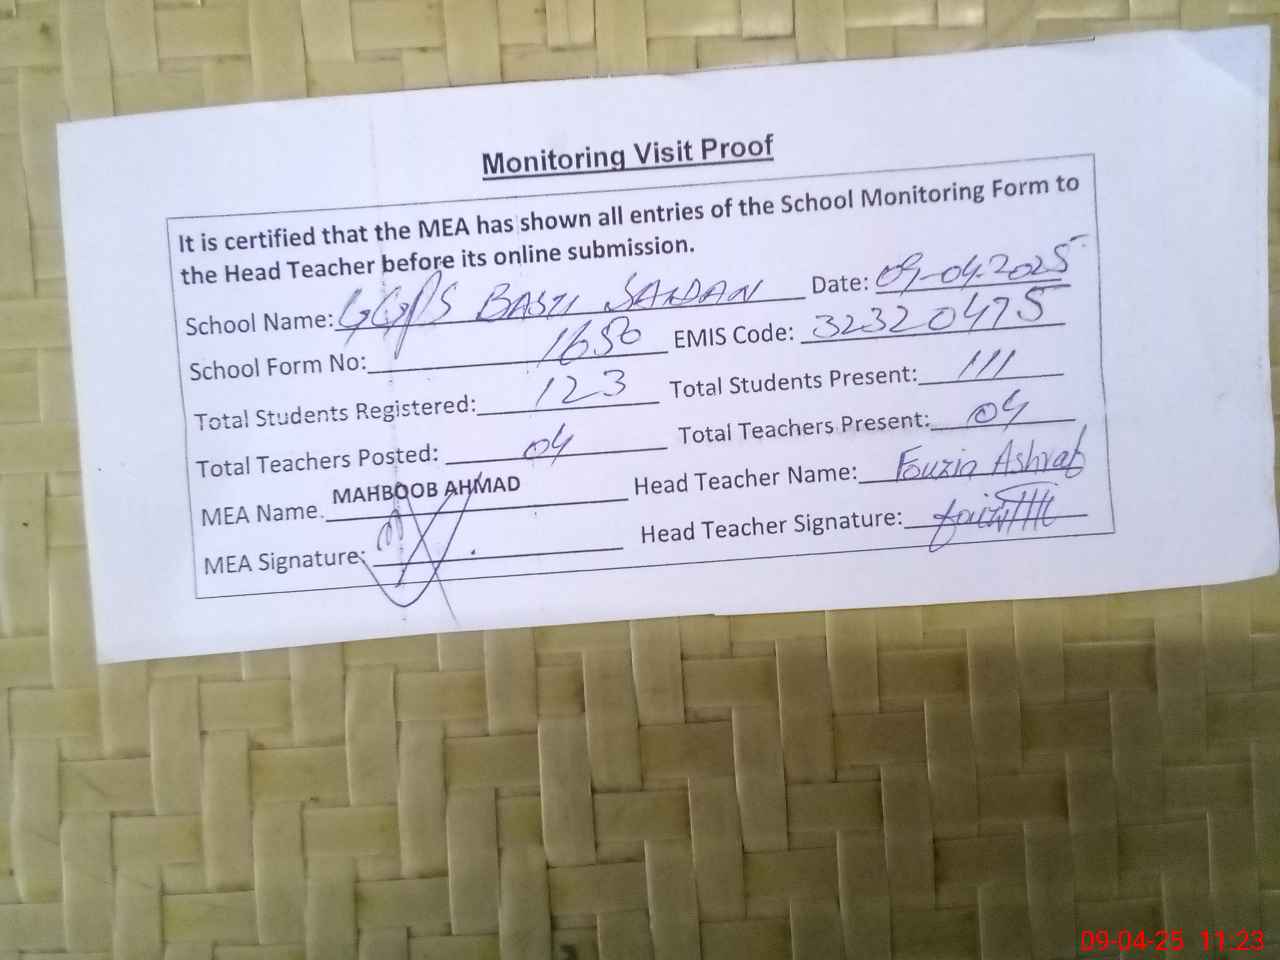 Monitoring Visit Proof
It is certified that the MEA has shown all entries of the School Monitoring Form to
the Head Teacher before its online submission.
School Name: GGPS BASTI SANDAN Date: 09-04-2025
School Form No: 1650 EMIS Code: 32320475
Total Students Registered: 123 Total Students Present: 111
Total Teachers Posted: 04 Total Teachers Present: 04
MEA Name. MAHBOOB AHMAD Head Teacher Name: Fouzia Ashraf
MEA Signature: Head Teacher Signature:
09-04-25 11:23